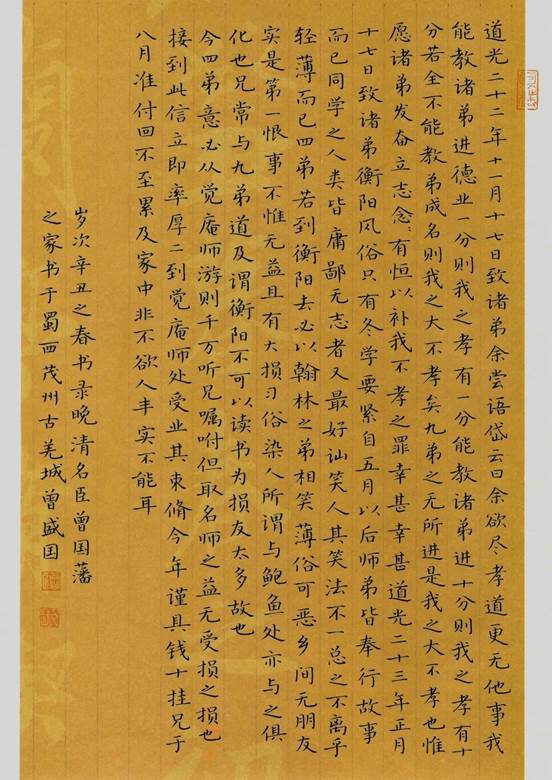 道光二十二年十一月十七日致诸弟余尝语岱云曰余欲尽孝道更无他事我
能教诸弟进德业一分则我之孝有一分能教诸弟进十分则我之孝有十
分若全不能教弟成名则我之大不孝矣九弟之无所进是我之大不孝也惟
愿诸弟发奋立志念〻有恒以补我不孝之罪幸甚幸甚道光二十三年正月
十七日致诸弟衡阳风俗只有冬学要紧自五月以后师弟皆奉行故事
而已同学之人类皆庸鄙无志者又最好讪笑人其笑法不一总之不离乎
轻薄而已四弟若到衡阳去必以翰林之弟相笑薄俗可恶乡间无朋友
实是第一恨事不惟无益且有大损习俗染人所谓与鲍鱼处亦与之俱
化也兄常与九弟道及谓衡阳不可以读书为损友太多故也
今四弟意必从觉庵师游则千万听兄嘱咐但取名师之益无受损之损也
接到此信立即率厚二到觉庵师处受业其束脩今年谨具钱十挂兄于
八月准付回不至累及家中非不欲人丰实不能耳
岁次辛丑之春书录晚清名臣曾国藩
之家书于蜀西茂州古羌城曾盛国